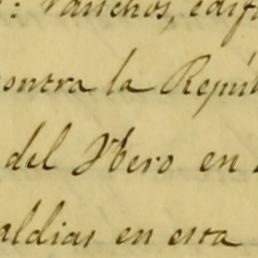 : Ranchos, edif
contra la Repú
del Ybero en
aldias en esta